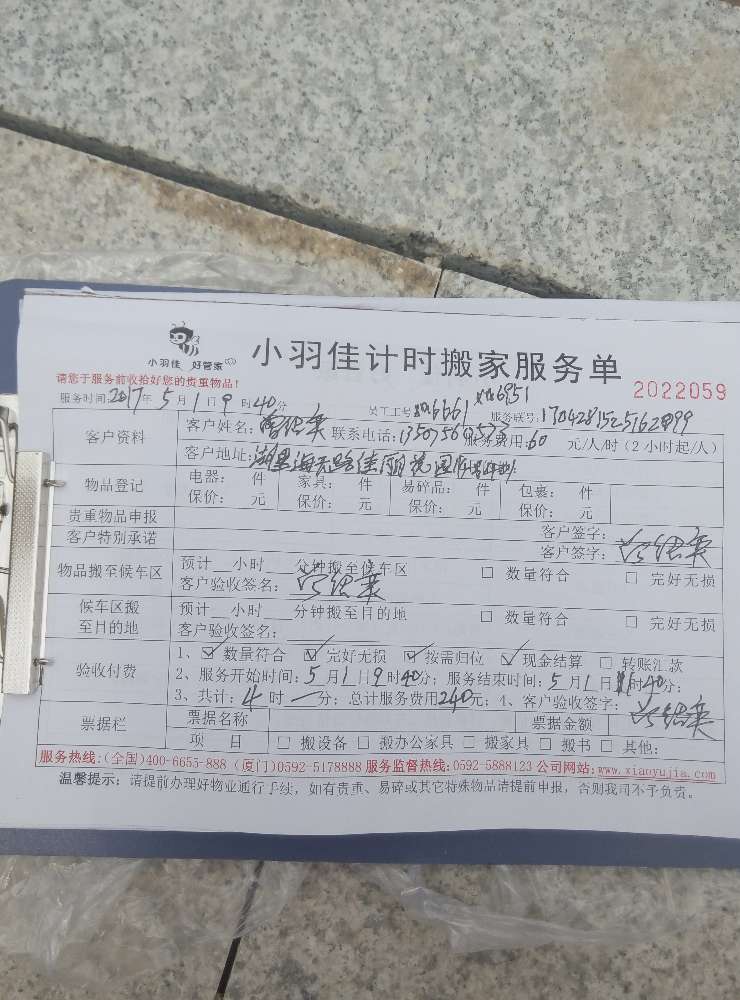 小羽佳 好管家
小羽佳计时搬家服务单
2022059
请您于服务前收拾好您的贵重物品!
服务时间:2017年5月1日9时40分 员工工号 6661 6951 服务联号:
客户资料
客户姓名: 联系电话: 服务费用:60 元/人/时(2小时起/人)
客户地址:湖里海天路佳丽花园
物品登记
电器: 件 家具: 件 易碎品: 件 包裹: 件
保价: 元 保价: 元 保价: 元 保价: 元
贵重物品申报 客户签字:
客户特别承诺 客户签字:
物品搬至候车区
预计__小时__分钟搬至候车区 □ 数量符合 □ 完好无损
客户验收签名:
候车区搬
至目的地
预计__小时__分钟搬至目的地 □ 数量符合 □ 完好无损
客户验收签名:
验收付费
1、☑ 数量符合 ☑ 完好无损 ☑ 按需归位 ☑ 现金结算 □ 转账汇款
2、服务开始时间:5月1日9时40分;服务结束时间:5月1日时40分;
3、共计:4时一分;总计服务费用240元;4、客户验收签字:
票据栏
票据名称 票据金额
项 目 □ 搬设备 □ 搬办公家具 □ 搬家具 □ 搬书 □ 其他:
服务热线:(全国)400-6655-888 (厦门)0592-5178888 服务监督热线:0592-5888123 公司网站:www.xiaoyujia.com
温馨提示:请提前办理好物业通行手续,如有贵重、易碎或其它特殊物品请提前申报,否则我司不予负责。